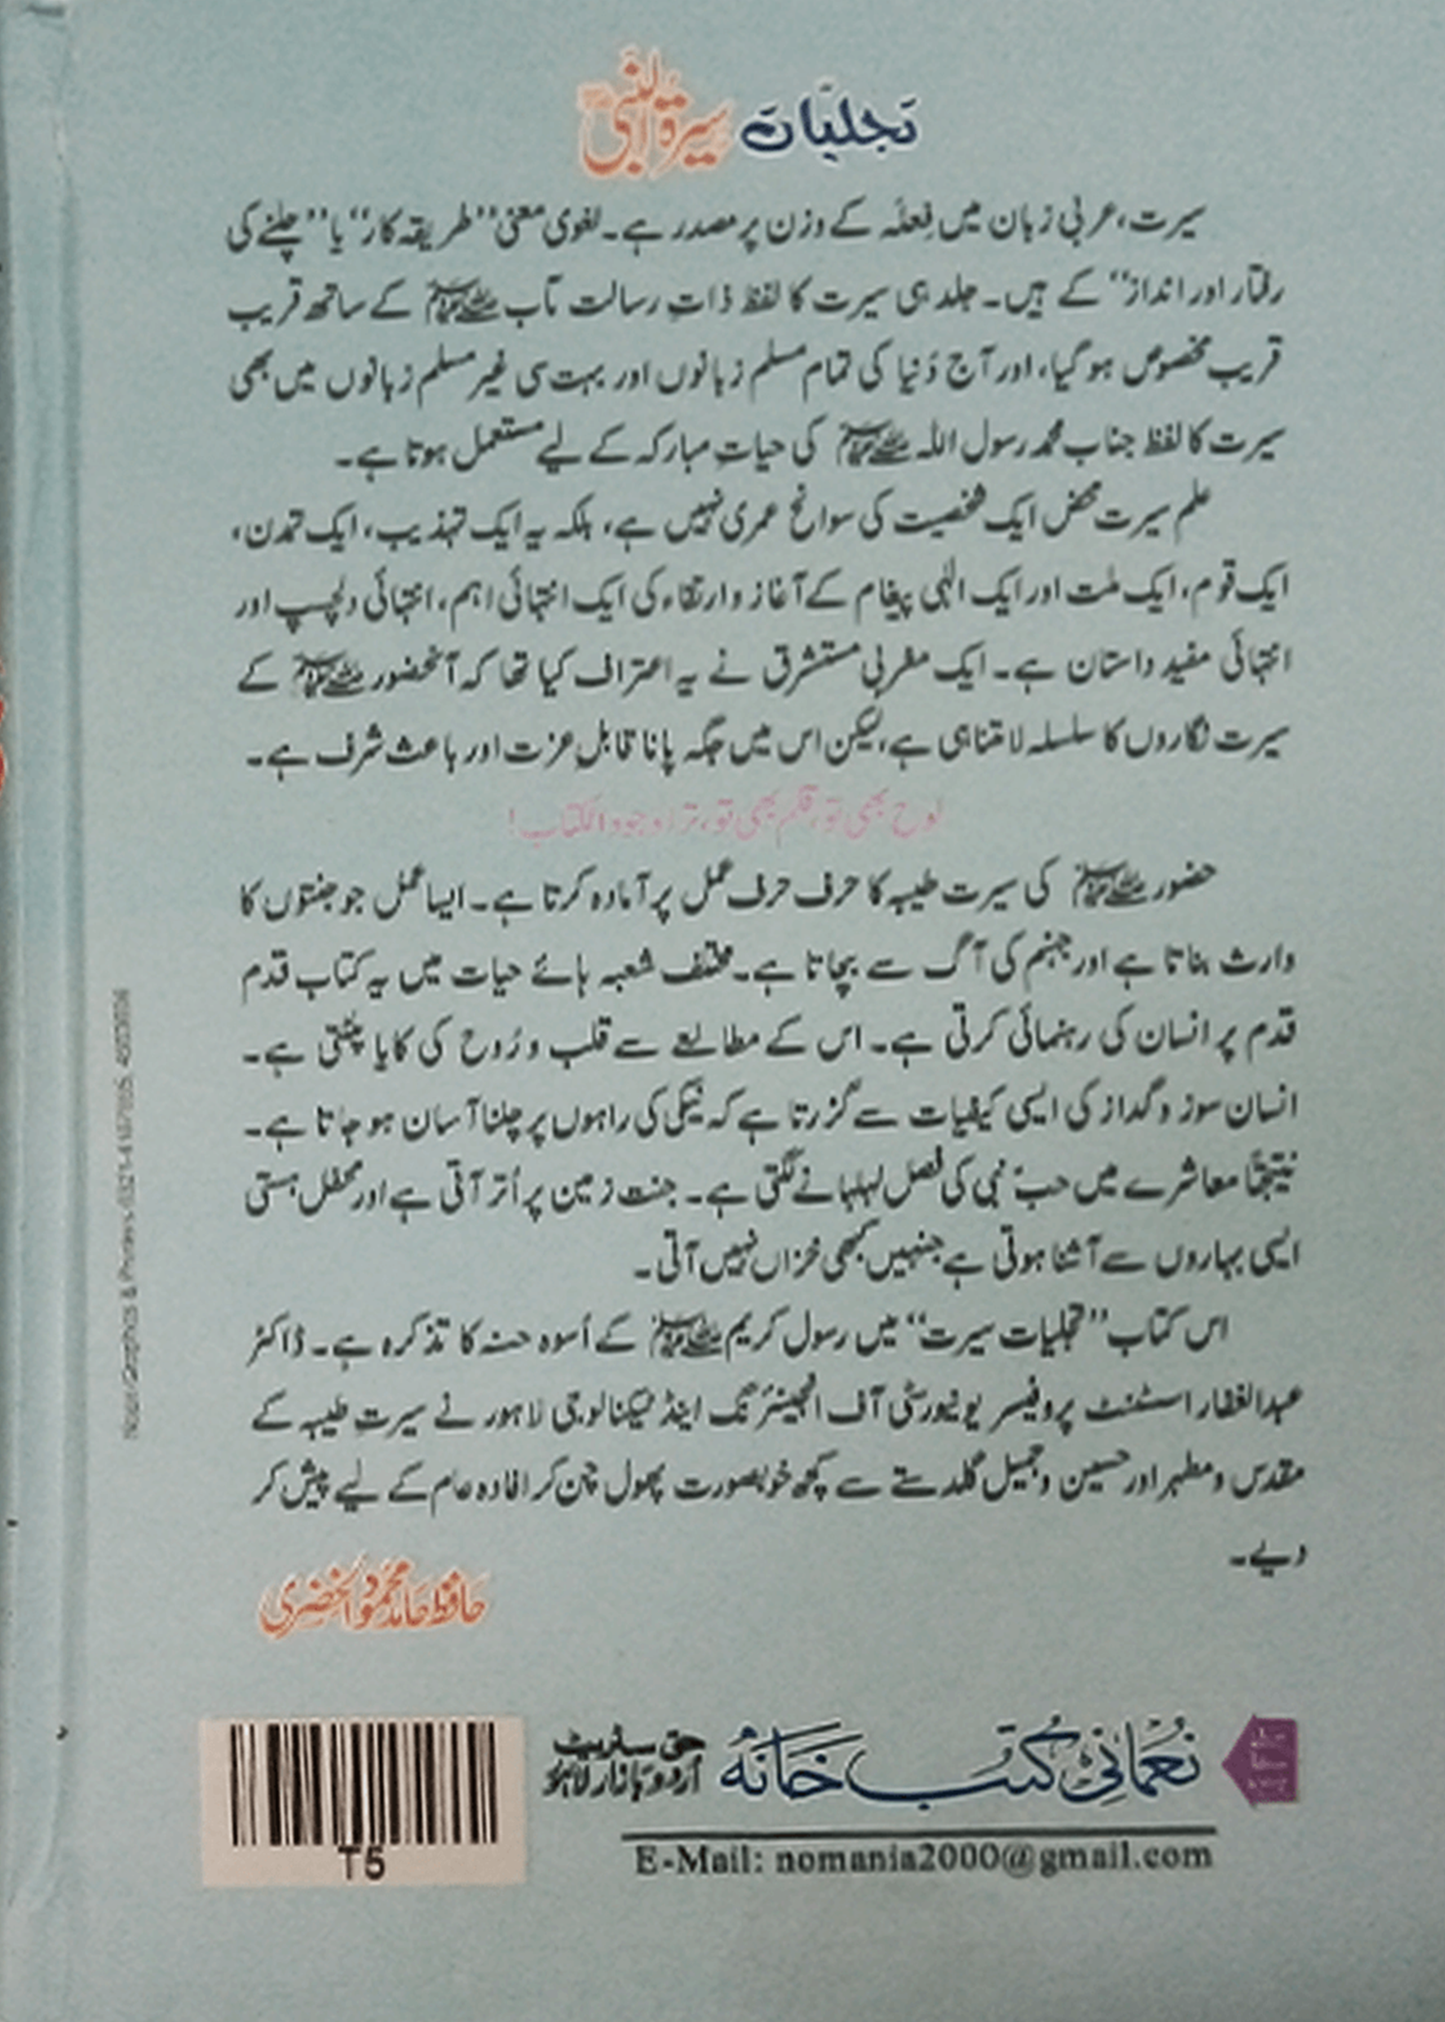 تجلیات سیرۃ النبی
سیرت، عربی زبان میں فِعلَہ کے وزن پر مصدر ہے۔ لغوی معنی ’’طریقہ کار‘‘ یا ’’چلنے کی
رفتار اور انداز‘‘ کے ہیں۔ جلد ہی سیرت کا لفظ ذاتِ رسالت مآب ﷺ کے ساتھ قریب
قریب مخصوص ہو گیا، اور آج دُنیا کی تمام مسلم زبانوں اور بہت سی غیر مسلم زبانوں میں بھی
سیرت کا لفظ جناب محمد رسول اللہ ﷺ کی حیاتِ مبارکہ کے لیے مستعمل ہوتا ہے۔
علم سیرت محض ایک شخصیت کی سوانح عمری نہیں ہے، بلکہ یہ ایک تہذیب، ایک تمدن،
ایک قوم، ایک ملت اور ایک الٰہی پیغام کے آغاز و ارتقاء کی ایک انتہائی اہم، انتہائی دلچسپ اور
انتہائی مفید داستان ہے۔ ایک مغربی مستشرق نے یہ اعتراف کیا تھا کہ آنحضور ﷺ کے
سیرت نگاروں کا سلسلہ لا متناہی ہے، لیکن اس میں جگہ پانا قابلِ عزت اور باعث شرف ہے۔
لوح بھی تو، قلم بھی تو، ترا وجود الکتاب!
حضور ﷺ کی سیرت طیبہ کا حرف حرف عمل پر آمادہ کرتا ہے۔ ایسا عمل جو جنتوں کا
وارث بناتا ہے اور جہنم کی آگ سے بچاتا ہے۔ مختلف شعبہ ہائے حیات میں یہ کتاب قدم
قدم پر انسان کی رہنمائی کرتی ہے۔ اس کے مطالعے سے قلب و رُوح کی کایا پلٹتی ہے۔
انسان سوز و گداز کی ایسی کیفیات سے گزرتا ہے کہ نیکی کی راہوں پر چلنا آسان ہو جاتا ہے۔
نتیجتاً معاشرے میں حبِّ نبی کی فصل لہلہانے لگتی ہے۔ جنت زمین پر اُتر آتی ہے اور محفل ہستی
ایسی بہاروں سے آشنا ہوتی ہے جنہیں کبھی خزاں نہیں آتی۔
اس کتاب ’’تجلیات سیرت‘‘ میں رسول کریم ﷺ کے اُسوہ حسنہ کا تذکرہ ہے۔ ڈاکٹر
عبدالغفار اسسٹنٹ پروفیسر یونیورسٹی آف انجینئرنگ اینڈ ٹیکنالوجی لاہور نے سیرتِ طیبہ کے
مقدس و مطہر اور حسین و جمیل گلدستے سے کچھ خوبصورت پھول چن کر افادہ عام کے لیے پیش کر
دیے۔
حافظ حامد محمود الخضری
نعمانی کتب خانہ
حق سٹریٹ
اردو بازار لاہور
E-Mail: nomania2000@gmail.com
T5